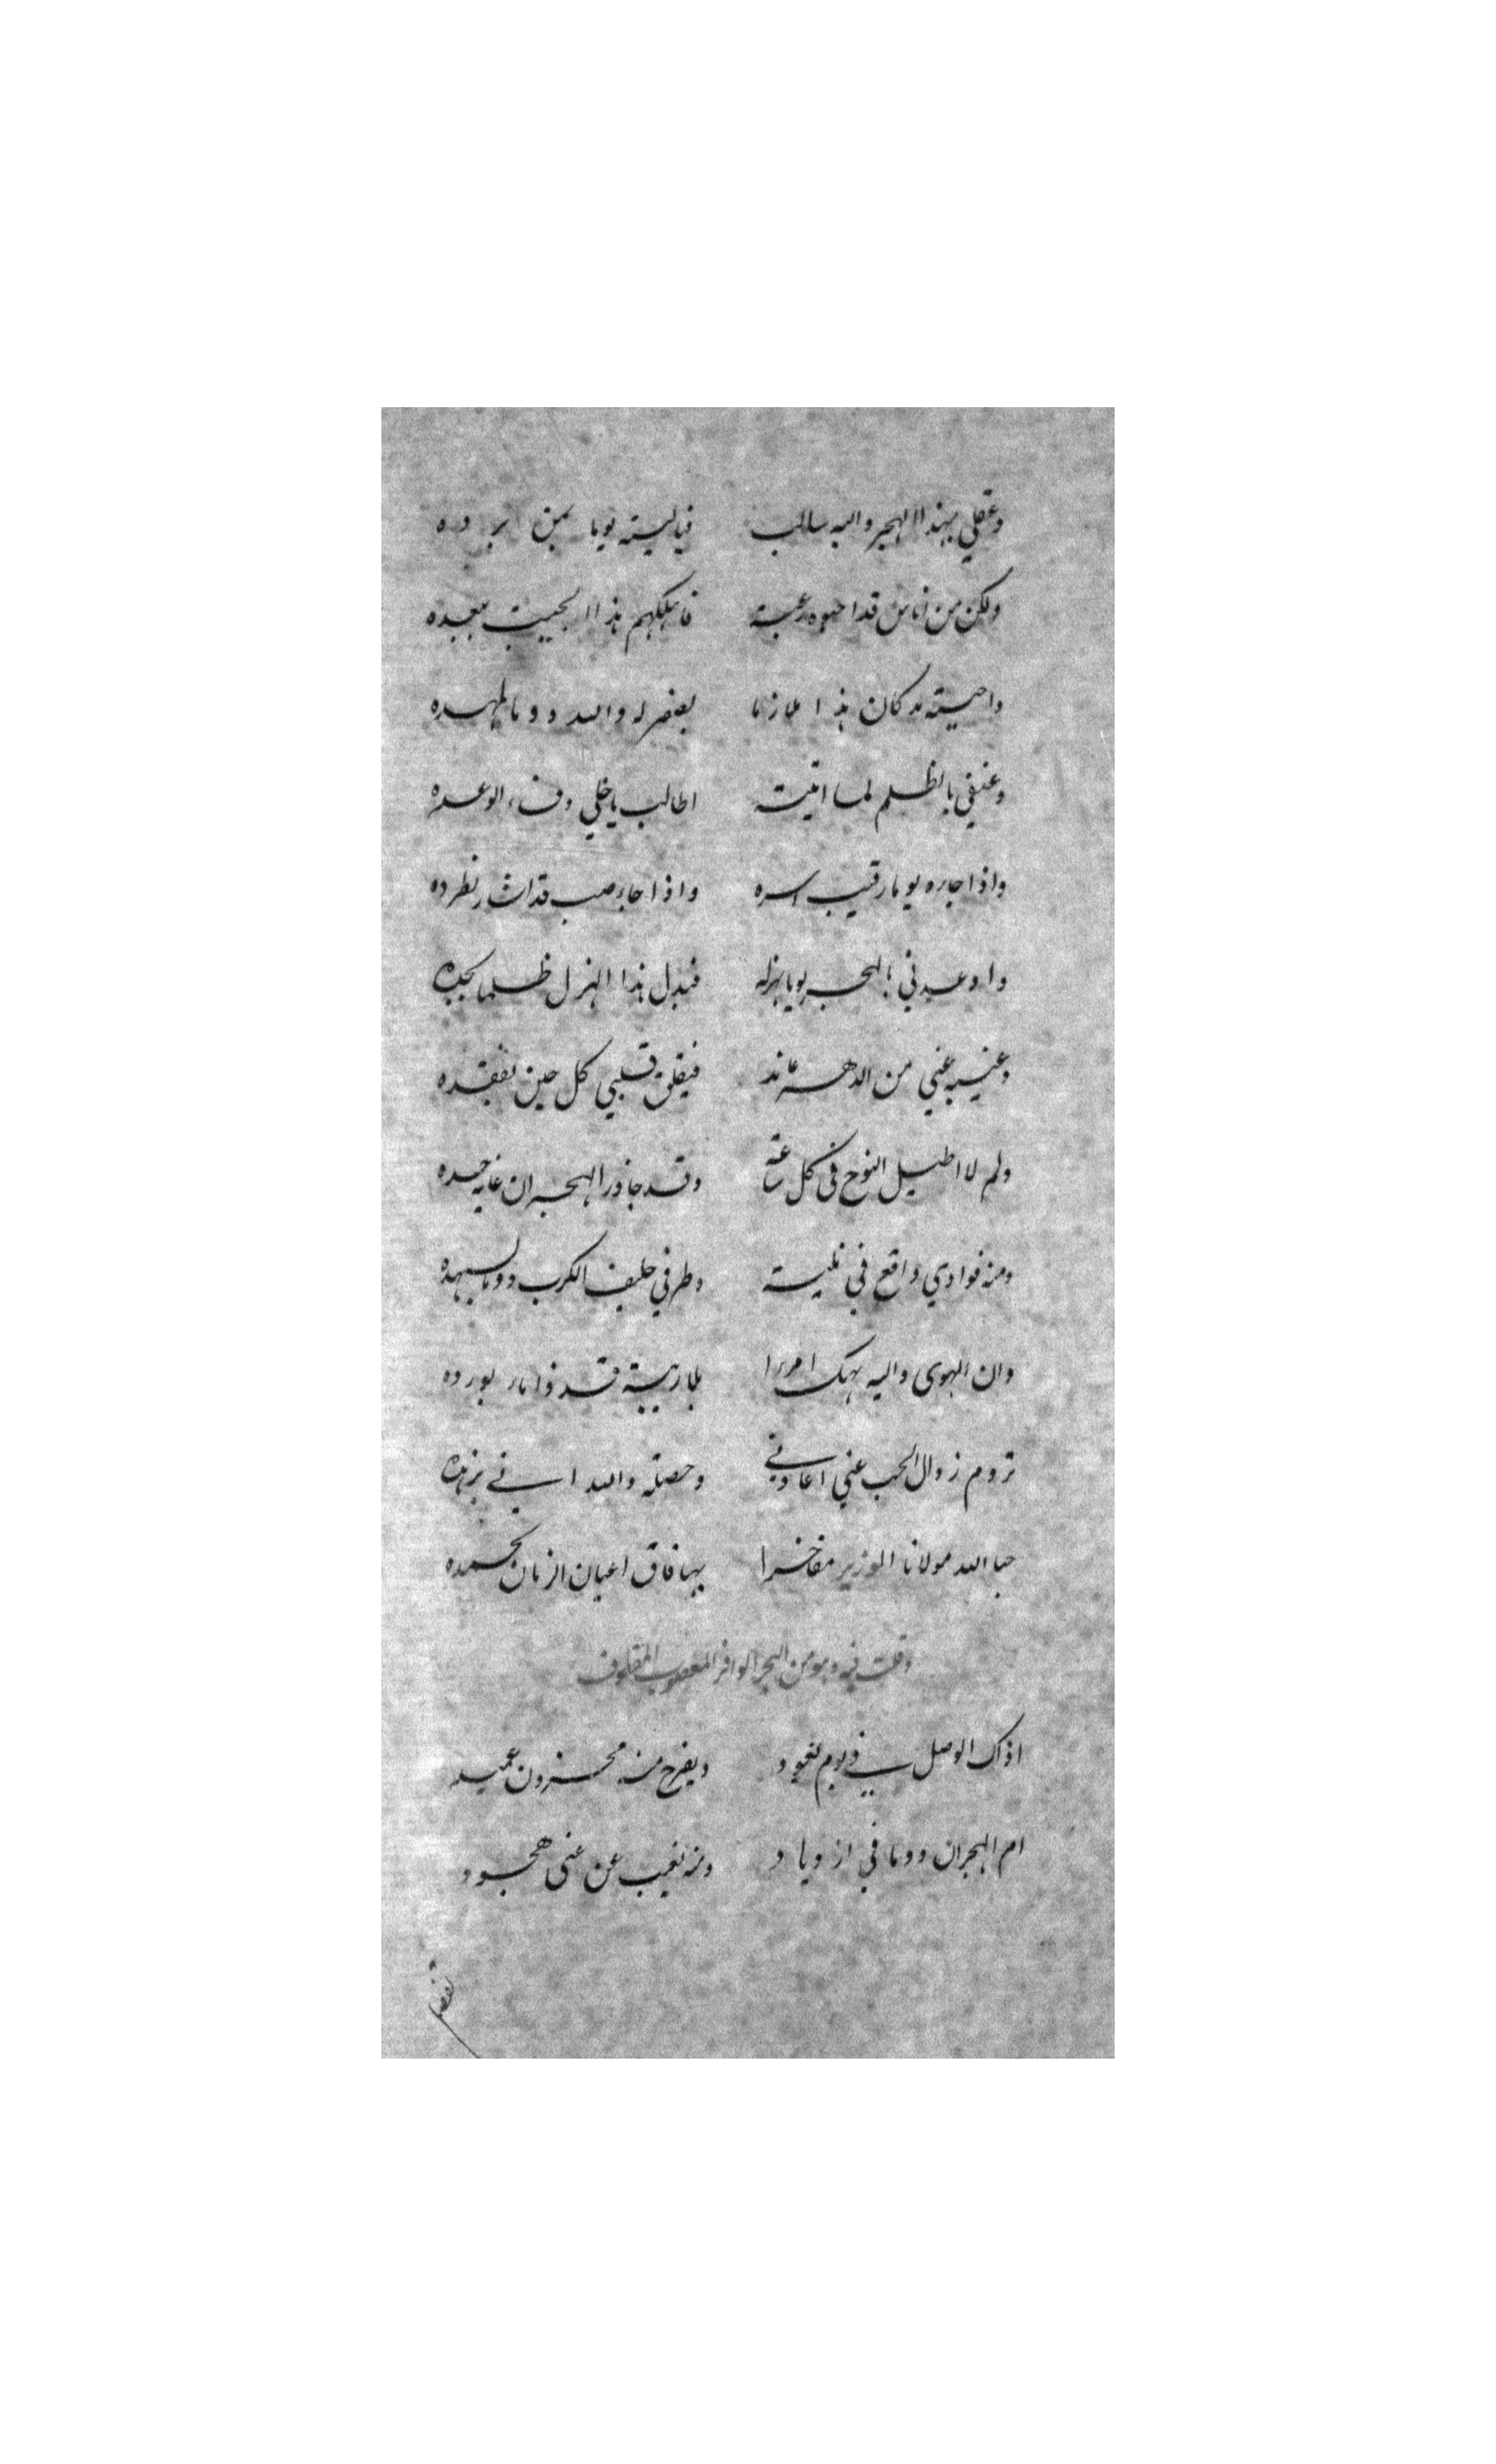 وعقلي بهذا الهجر والله سالب فياليته يوما يمن برده
ولكن من اناس قد احبوه رغبة فاهلكهم هذا الحبيب ببعده
واحيته مذ كان هذا ملازما لعفر له والله دوما لمهده
وعنفني بالظلم لما اتيته اطالب ياخلي وفاء الوعده
واذا جاره يوما رقيب اسره واذا جاء صب قد اشار لطرده
واوعدني بالهجر يوما بهزله فبدل هذا الهزل ظلما بجده
وغيبه عني من الدهر عاند فيقلق قلبي كل حين لفقده
ولم لا اطيل النوح في كل ساعة وقد جاوز الهجران غاية حده
ومنه فوادي واقع في بلية وطرفي حليف الكرب دوما لسهده
وان الهوى والله يهلك امرءا بلا ريبة قد ذا مار بورده
تروم زوال الحب عني اعادني وحصلته والله اني بزهده
حبا الله مولانا الوزير مفاخرا بها فاق اعيان الزمان بحمده
وقلت فيه وهو من البحر الوافر المعصوب المقطوف
اذاك الوصل في يوم يعود ويفرح منه محزون عميد
ام الهجران دوما في ازدياد ومنه تغيب عن عني هجود